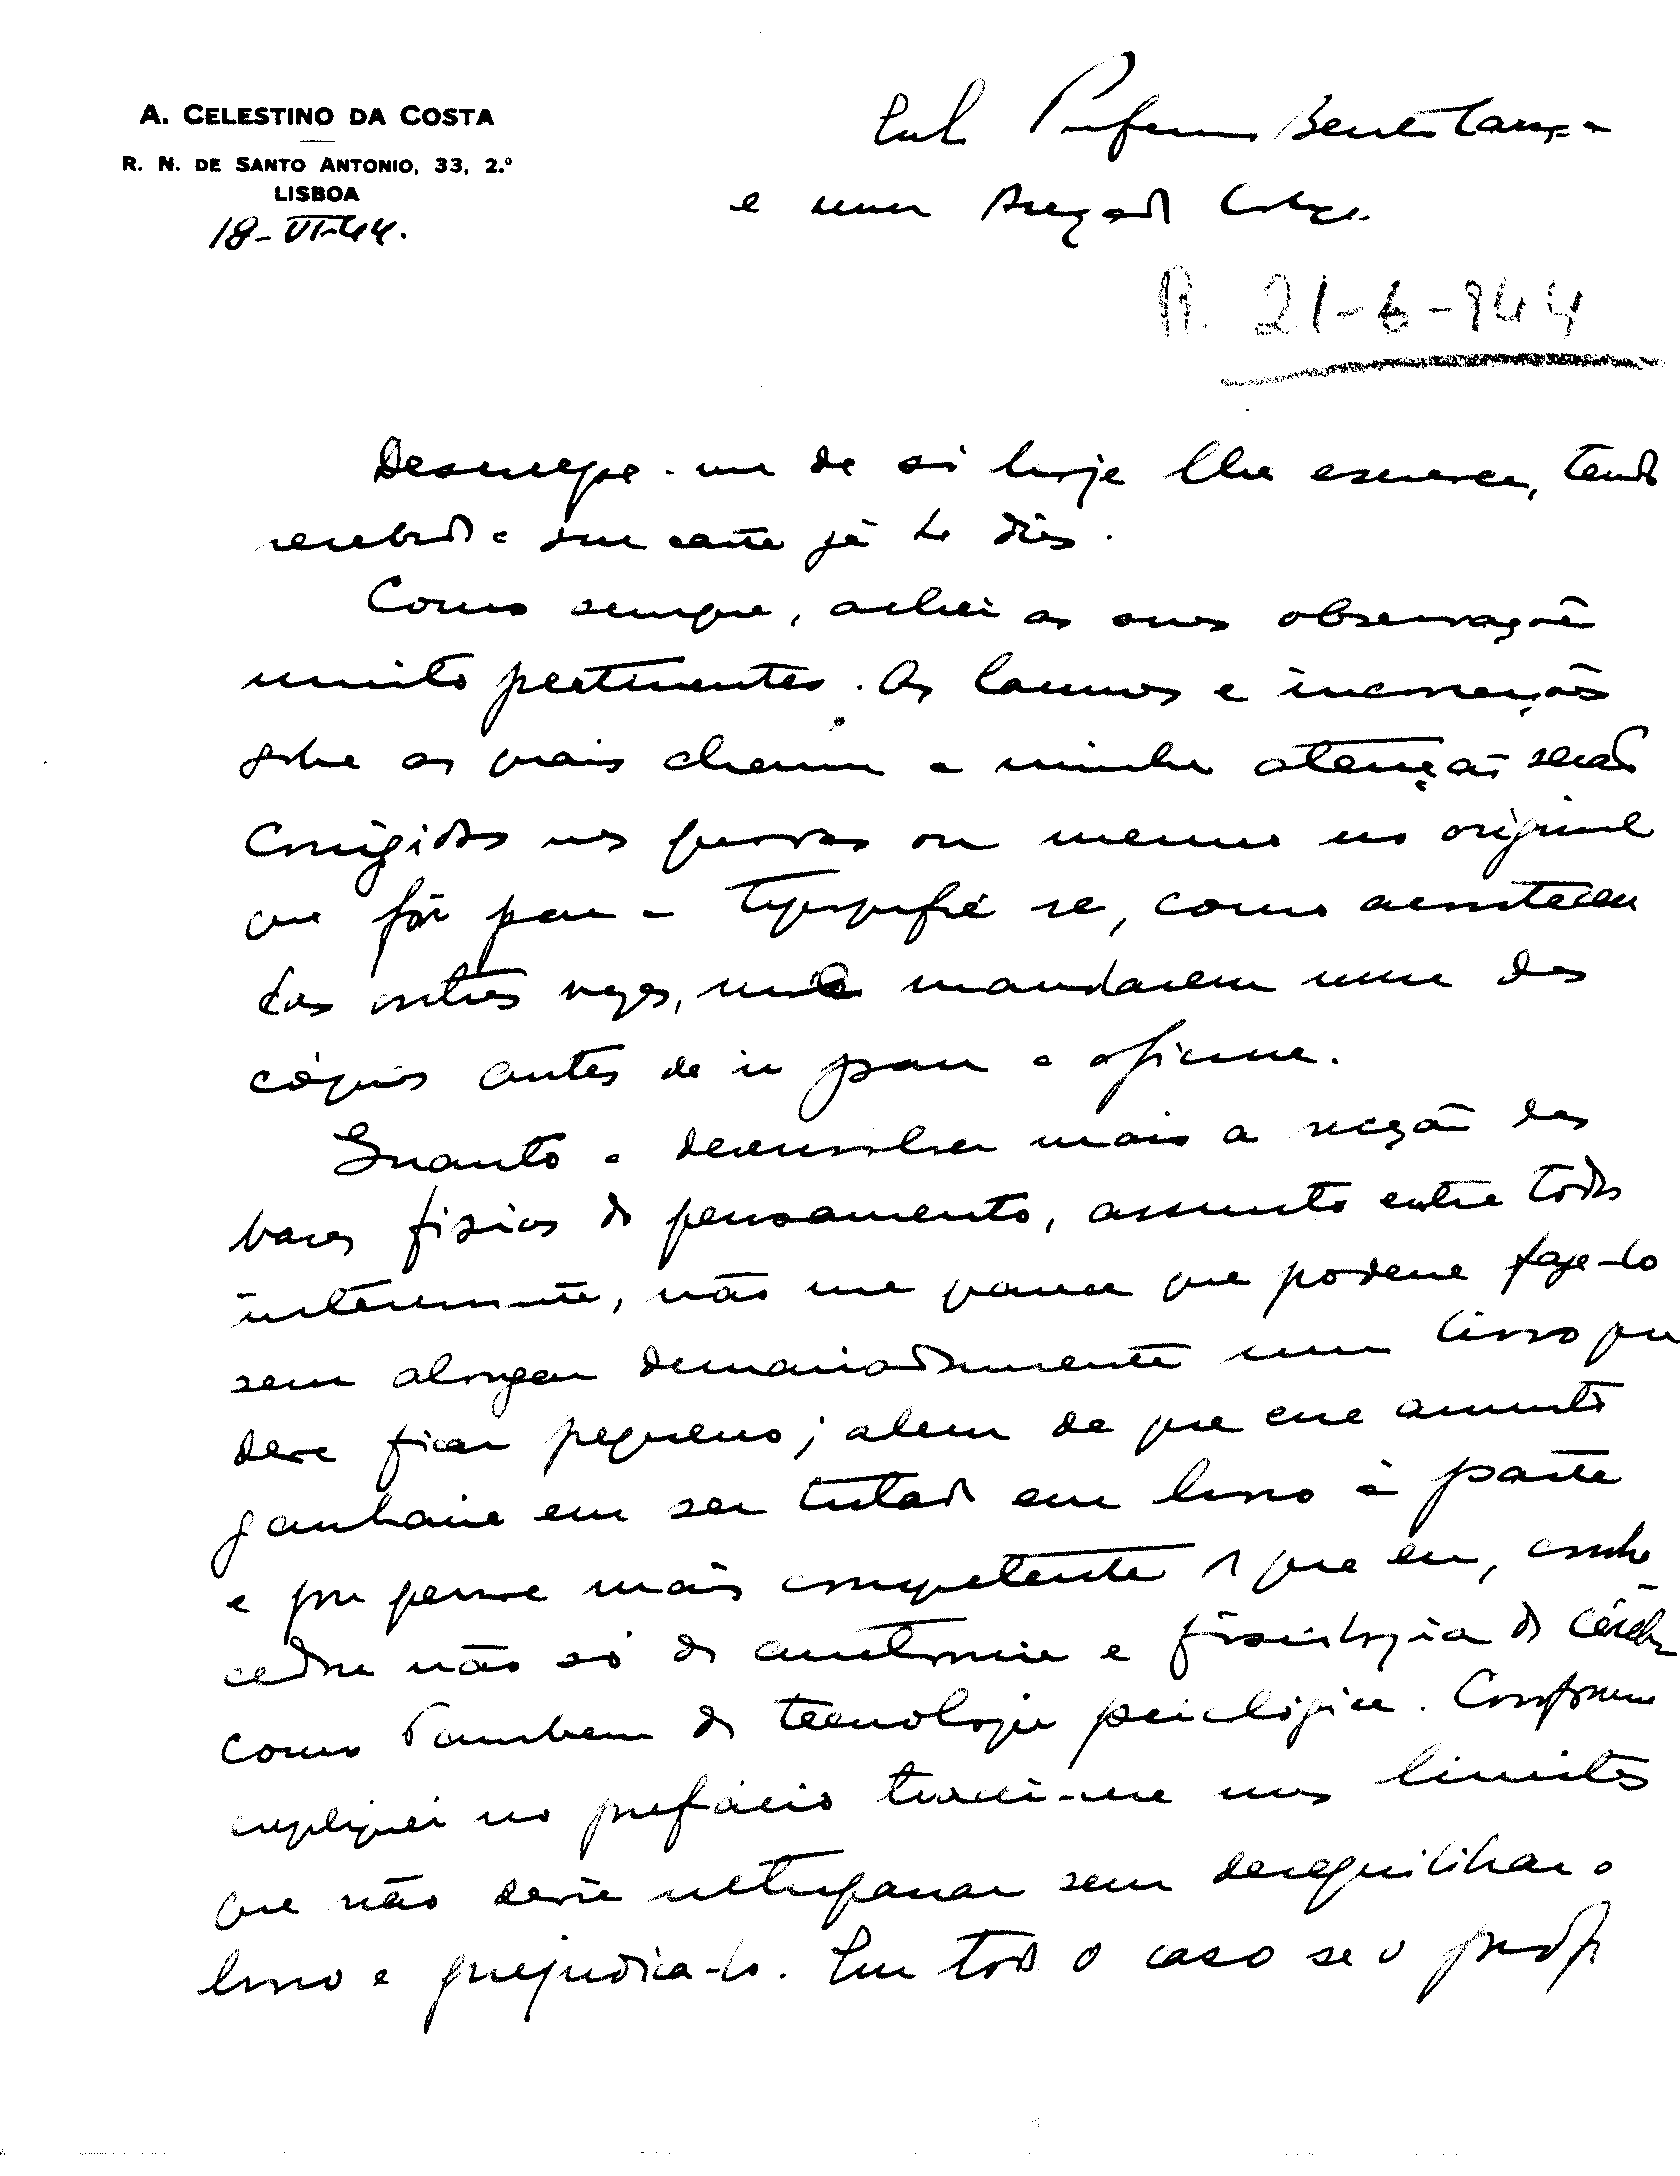 A. CELESTINO DA COSTA
R. N. DE SANTO ANTONIO, 33, 2.º
LISBOA
18-VI-44.
Professor Bento Caraça
e meu Prezado Colega
R. 21-6-944
Desculpe-me de só hoje lhe escrever, tendo
recebido a sua carta já há dias.
Como sempre, achei as suas observações
muito pertinentes. As lacunas e incorreções
sobre as quais chama a minha atenção serão
corrigidas nas provas ou mesmo no original
que fôr para a tipografia se, como aconteceu
das outras vezes, me mandarem uma das
cópias antes de ir para a oficina.
Quanto a desenvolver mais a noção das
bases fisicas do pensamento, assunto entre todos
interessante, não me parece que poderia faze-lo
sem alongar demasiadamente um livro que
deve ficar pequeno; alem de que esse assunto
ganharia em ser tratado em livro à parte
e por pessoa mais competente do que eu, conhe
cedora não só da anatomia e fisiologia do cérebro
como tambem da tecnologia psicológica. Conforme
expliquei no prefácio tracei-me uns limites
que não devia ultrapassar sem desequilibrar o
livro e prejudica-lo. Em todo o caso se o prof.